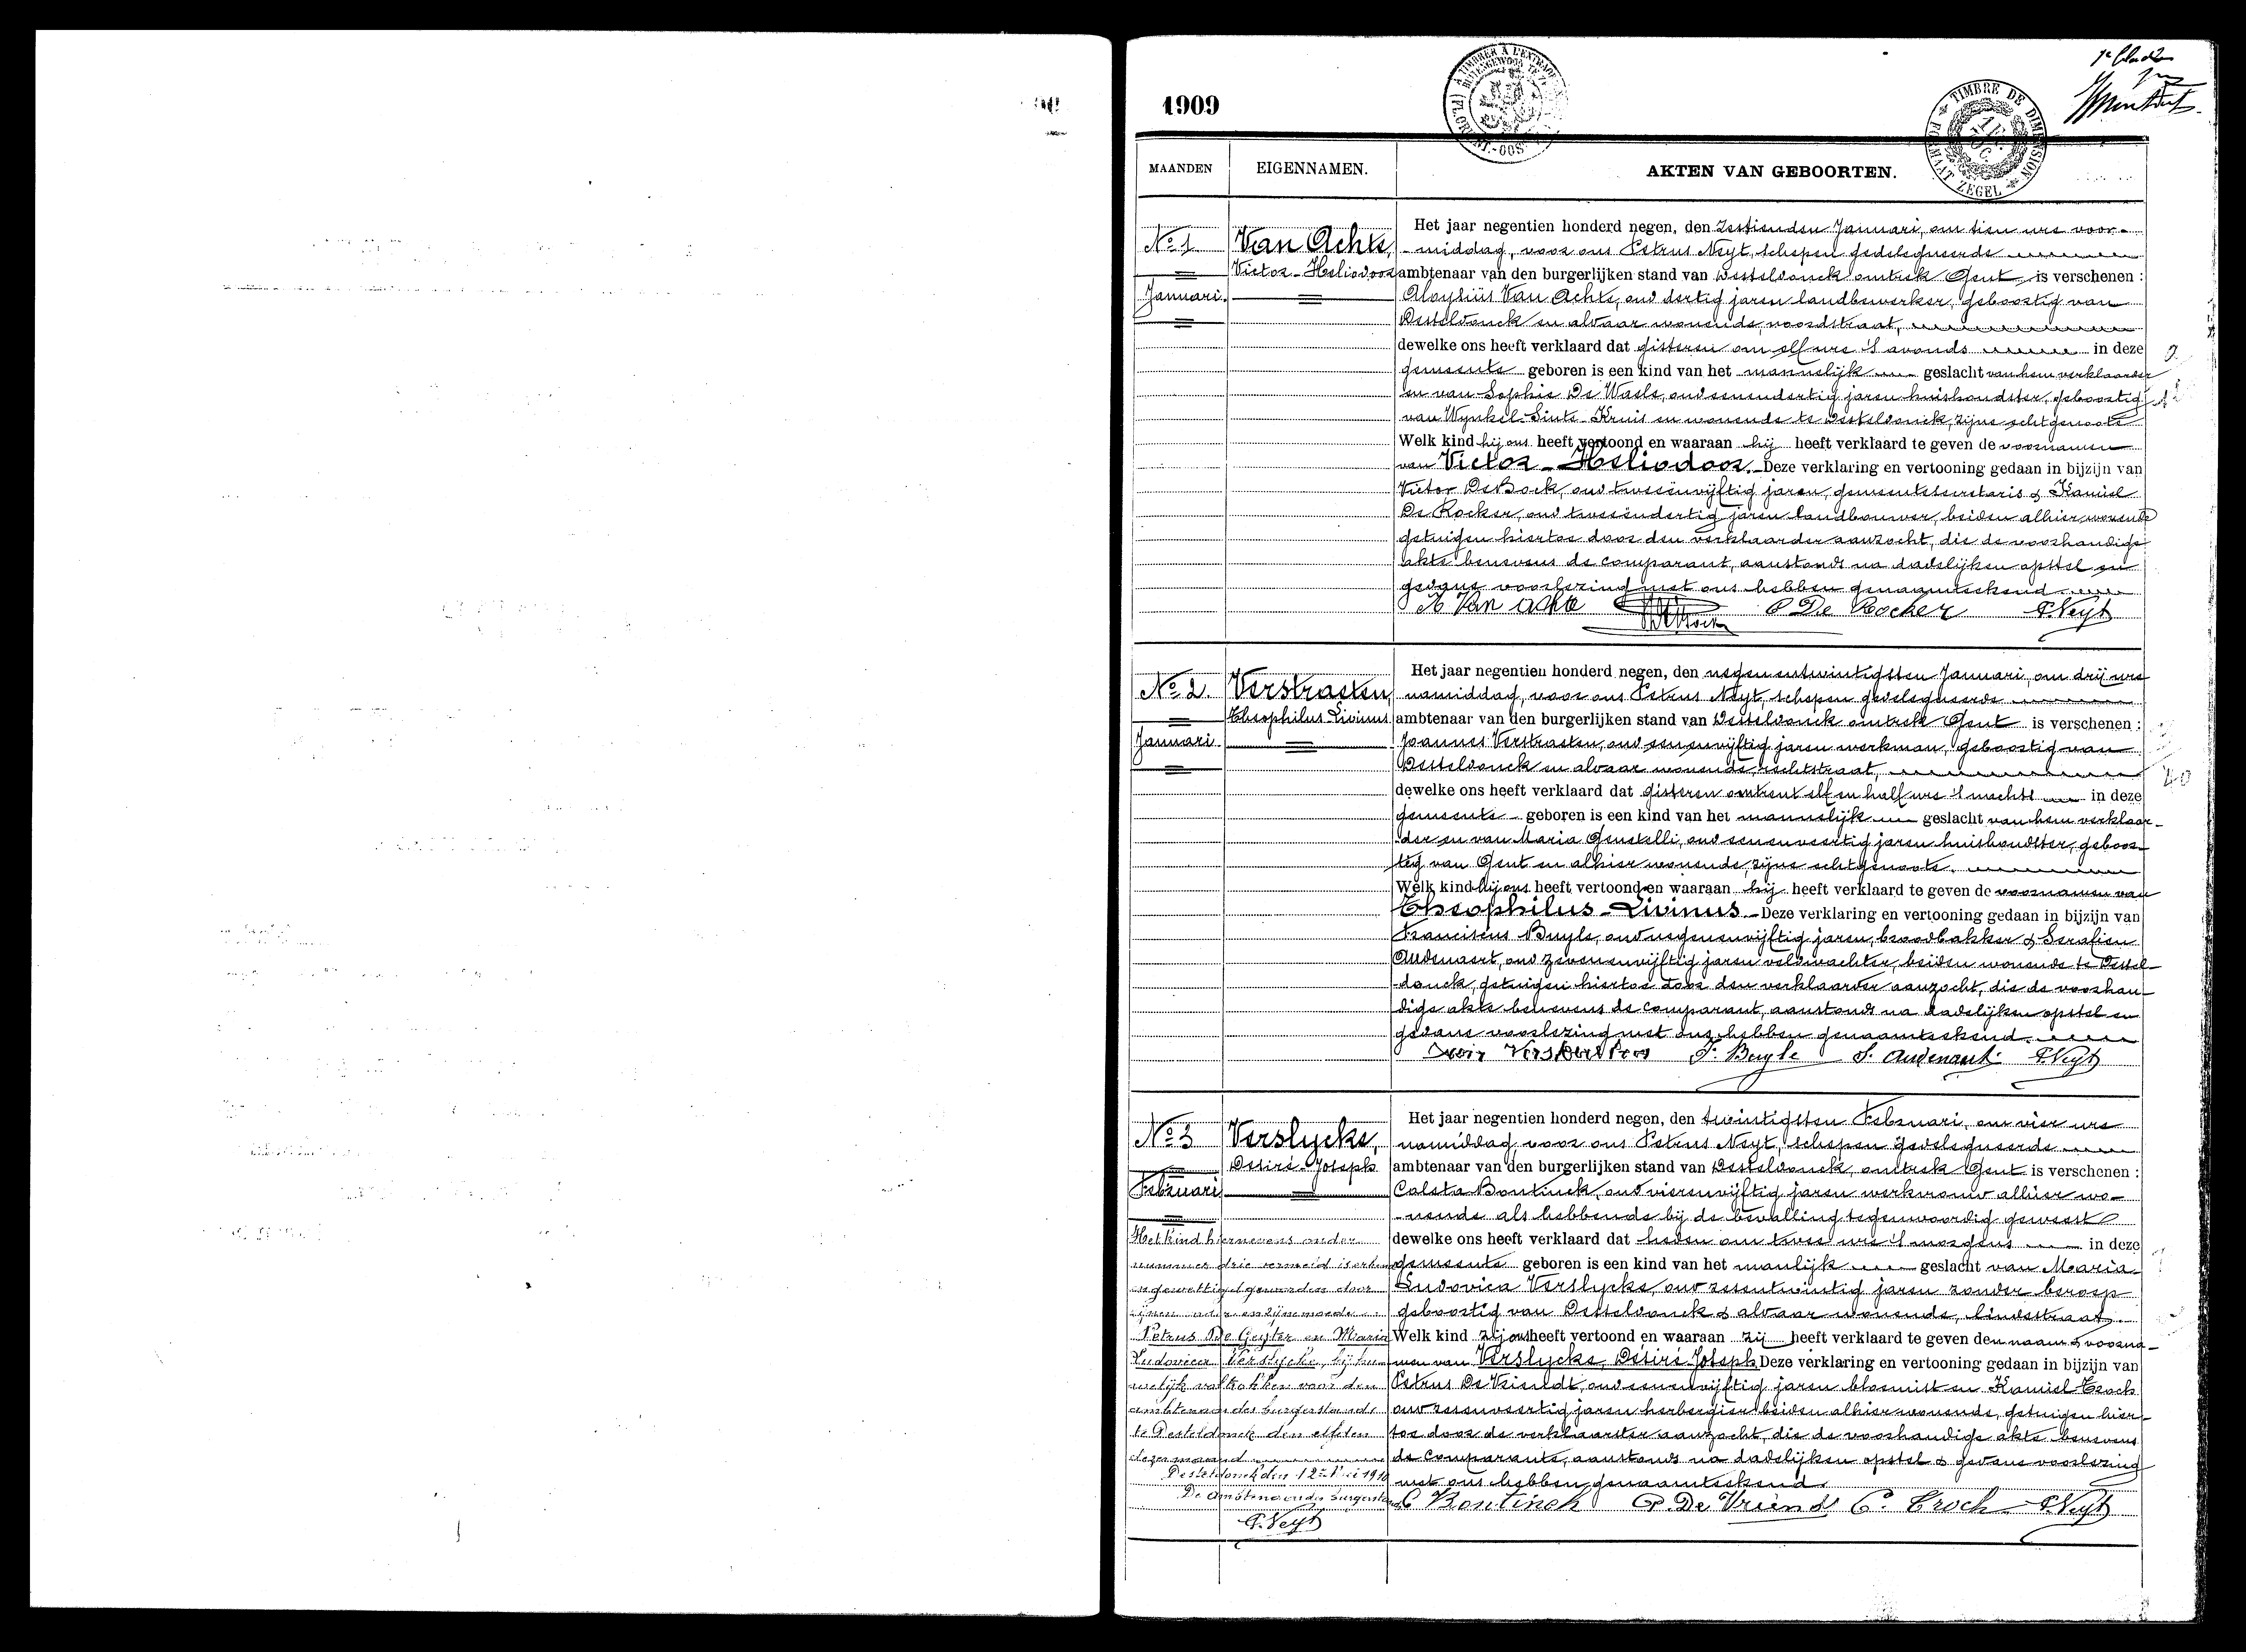 1909
1e blad
À TIMBRER À L'EXTRAOR
TIMBRE DE DIMENSION
FORMAAT ZEGEL
MAANDEN
EIGENNAMEN.
AKTEN VAN GEBOORTEN.
No 1
Januari.
Van Achte,
Victor-Heliodoor
Het jaar negentien honderd negen, den zestienden Januari, om tien ure voor-
middag, voor ons Petrus Neyt, schepen gedelegueerde
ambtenaar van den burgerlijken stand van Desteldonck omtrek Gent is verschenen:
Aloysius Van Achte, oud dertig jaren landbewerker, geboortig van
Desteldonck en aldaar wonende, noordstraat,
dewelke ons heeft verklaard dat gisteren om elf ure 's avonds in deze
gemeente geboren is een kind van het mannelijk geslacht van hem verklaarder
en van Sophie De Waele, oud eenendertig jaren huishoudster, geboortig
van Wynkel-Sinte-Kruis en wonende te Desteldonck, zijne echtgenoote
Welk kind hij ons heeft vertoond en waaraan hij heeft verklaard te geven de voornamen
van Victor-Heliodoor. Deze verklaring en vertooning gedaan in bijzijn van
Victor De Bock, oud tweeënvijftig jaren, gemeentesecretaris & Kamiel
De Rocker, oud tweeëndertig jaren landbouwer, beiden alhier wonende
getuigen hiertoe door den verklaarder aanzocht, die de voorhandige
akte benevens de comparant, aanstonds na dadelijken opstel en
gedane voorlezing met ons hebben genaamteekend
A Van Achte C De Rocker P. Neyt
No 2.
Januari
Verstraeten,
Theophilus Livinus
Het jaar negentien honderd negen, den negenentwintigsten Januari, om drij ure
namiddag, voor ons Petrus Neyt, schepen gedelegueerde
ambtenaar van den burgerlijken stand van Desteldonck omtrek Gent is verschenen:
Joannes Verstraeten, oud eenenvijftig jaren werkman, geboortig van
Desteldonck en aldaar wonende, rechtstraat,
dewelke ons heeft verklaard dat gisteren omtrent elf en half ure 's nachts in deze
gemeente geboren is een kind van het mannelijk geslacht van hem verklaar-
der en van Maria Genetelli, oud eenenveertig jaren huishoudster, geboor-
tig van Gent en alhier wonende, zijne echtgenoote.
Welk kind hij ons heeft vertoond en waaraan hij heeft verklaard te geven de voornamen van
Theophilus-Livinus. Deze verklaring en vertooning gedaan in bijzijn van
Franciscus Buyle, oud negenenvijftig jaren, broodbakker & Serafien
Audenaert, oud zevenenvijftig jaren veldwachter, beiden wonende te Destel-
donck, getuigen hiertoe door den verklaarder aanzocht, die de voorhan-
dige akte benevens de comparant, aanstonds na dadelijken opstel en
gedane voorlezing met ons hebben genaamteekend.
F. Buyle S. Audenaert P. Neyt
No 3
Februari
Verslycke,
Désiré-Joseph
Het jaar negentien honderd negen, den twintigsten Februari, om vier ure
namiddag voor ons Petrus Neyt, schepen gedelegueerde
ambtenaar van den burgerlijken stand van Desteldonck, omtrek Gent is verschenen:
Caleta Bontinck, oud vierenvijftig jaren werkvrouw alhier wo-
nende als hebbende bij de bevalling tegenwoordig geweest
dewelke ons heeft verklaard dat heden om twee ure 's morgens in deze
gemeente geboren is een kind van het manlijk geslacht van Maria-
Ludovica Verslycke, oud zesentwintig jaren zonder beroep
geboortig van Desteldonck & aldaar wonende, lindestraat.
Welk kind zij ons heeft vertoond en waaraan zij heeft verklaard te geven den naam & voorna-
men van Verslycke, Désiré Joseph Deze verklaring en vertooning gedaan in bijzijn van
Petrus De Vriendt, oud eenenvijftig jaren bloemist en Kamiel Croch
oud zesenveertig jaren herbergier beiden alhier wonende, getuigen hier-
toe door de verklaarster aanzocht, die de voorhandige akte benevens
de comparante, aanstonds na dadelijken opstel & gedane voorlezing
met ons hebben genaamteekend.
C Bontinck P. De Vriend C. Croch P. Neyt
Het kind hiernevens onder
nummer drie vermeld is erkend
en gewettigd geworden door
zijnen vader en zijne moeder
Petrus De Geyter en Maria
Ludovica Verslycke, bij hu-
welijk voltrokken voor den
ambtenaar des burgerstands
te Desteldonck den elfden
dezer maand
Desteldonck den 12n Mei 1910
De Ambtenaar des burgerstands
P. Neyt